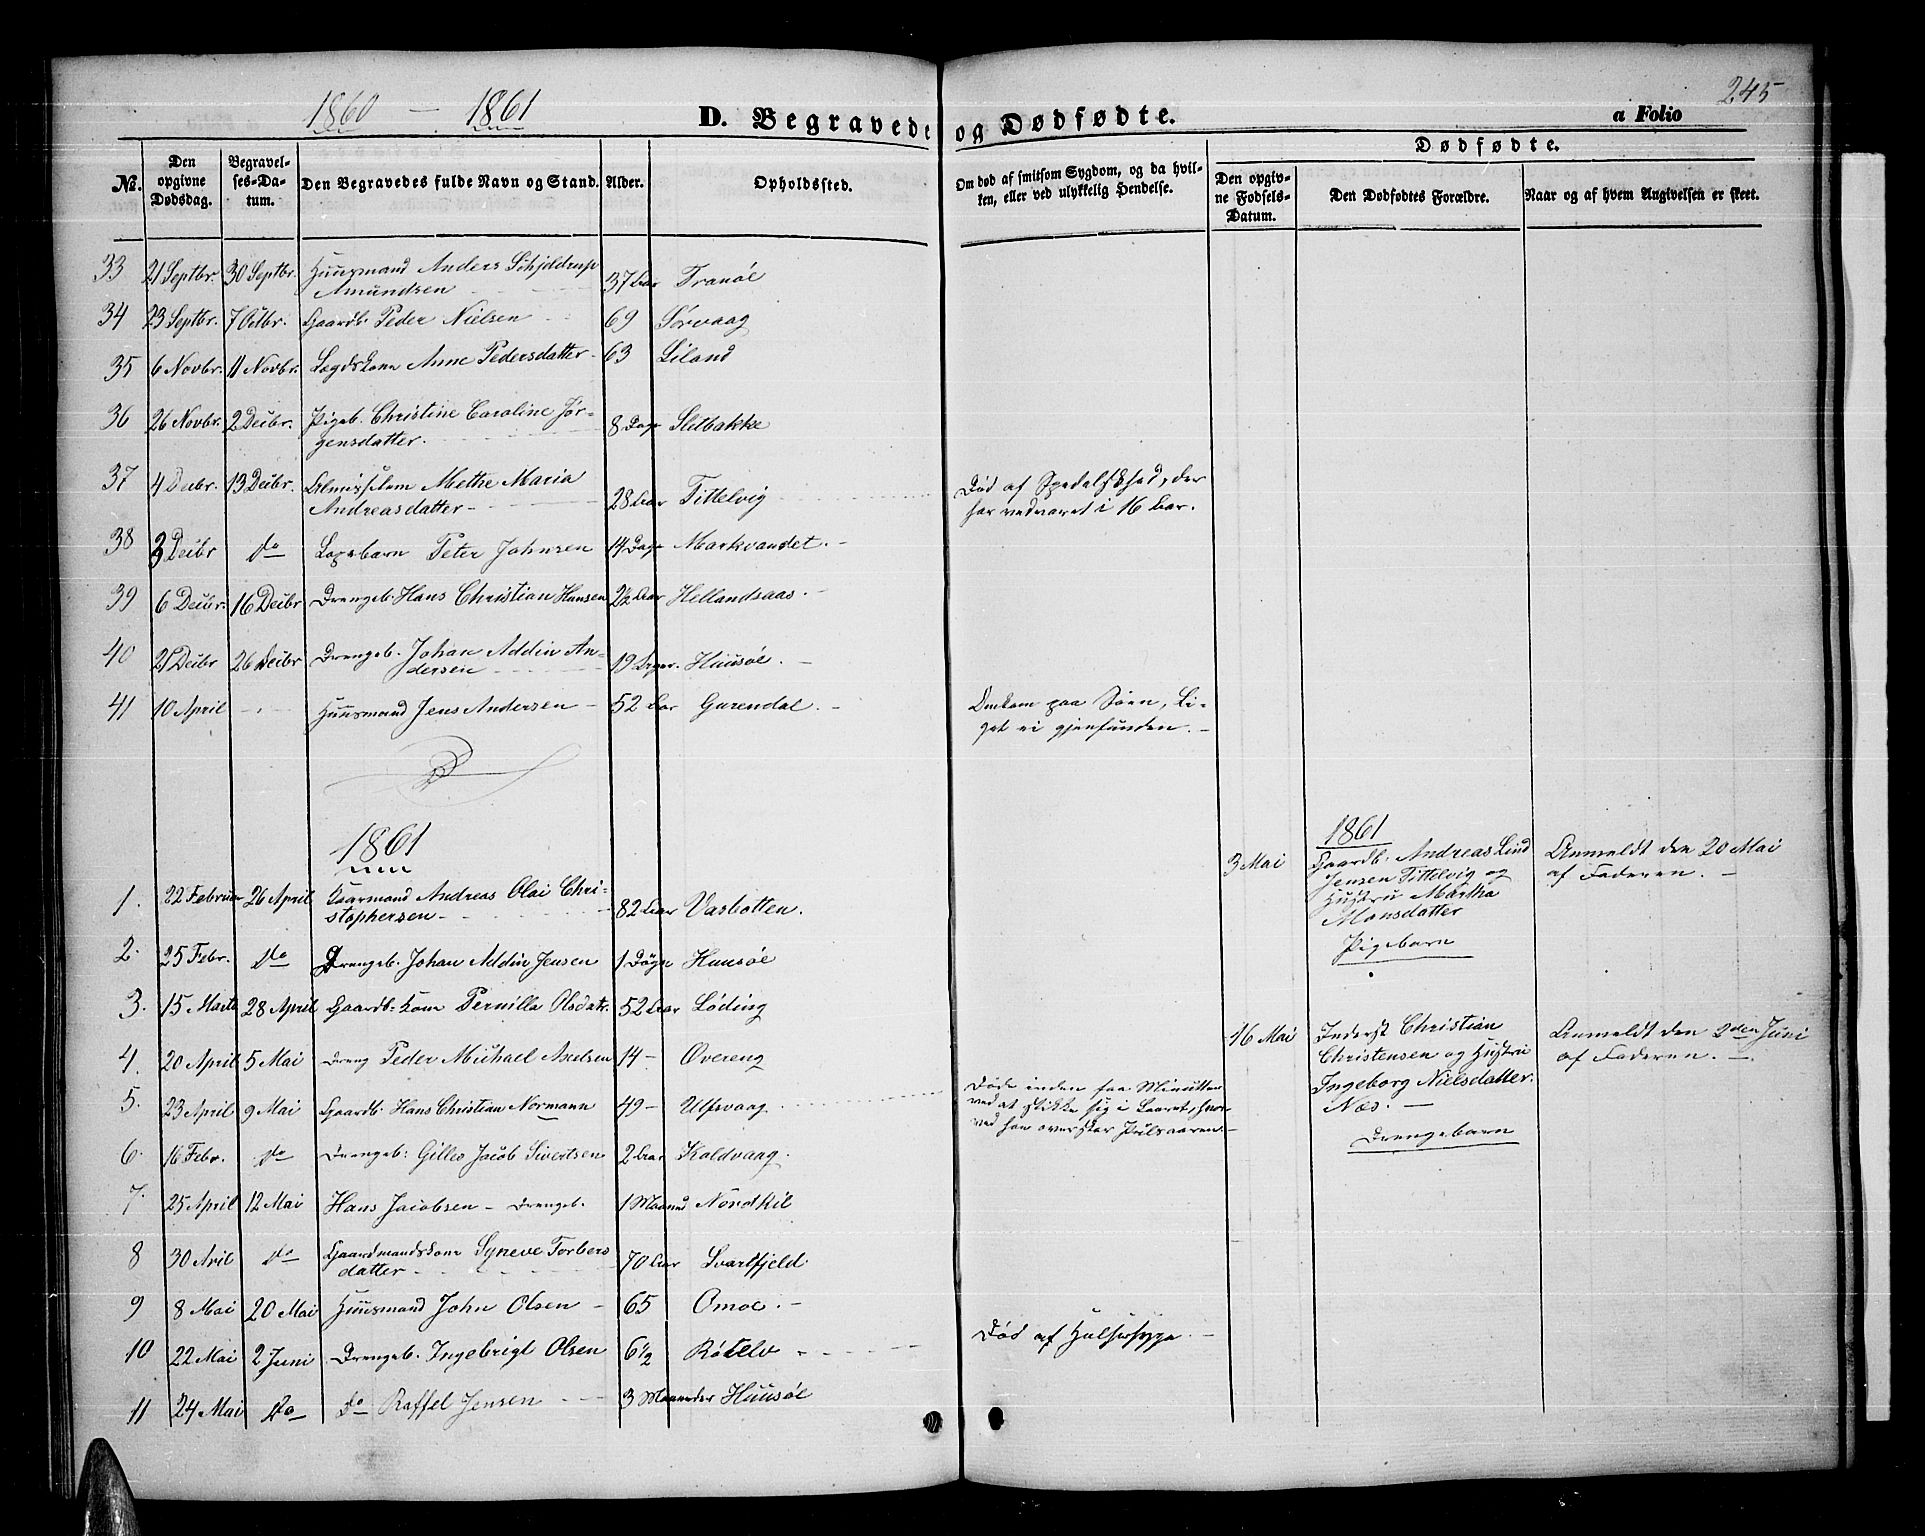 1860 - 1861
245
D. Begravede og Dødfødte.
a Folio
No.
Den opgivne Dødsdag.
Begravelses-Datum.
Den Begravedes fulde Navn og Stand.
Alder.
Opholdssted.
Om død af smitsom Sygdom, og da hvilken, eller ved ulykkelig Hendelse.
Dødfødte.
Den opgivne Fødsels-Datum.
Den Dødfødtes Forældre.
Naar og af hvem Angivelsen er skeet.
33 21 Septbr. 30 Septbr. Huusmand Anders Schjeldrup
Amundsen 37 Aar Tranøe
34 23 Septbr. 7 Octbr. Gaardb. Peder Nielsen 69 Sørvaag
35 6 Novbr. 11 Novbr. Lægdskone Anne Pedersdatter 63 Liland
36 26 Novbr. 2 Decbr. Pigeb. Christine Caroline Jør-
gensdatter. 8 Dage Sletbakke
37 4 Decbr. 13 Decbr. Almisselem Methe Maria
Andreasdatter 28 Aar Tittelvig Død af Spedalskhed, der
har vedvaret i 16 Aar.
38 3 Decbr do Peter Johnsen 14 Dage Markvandet.
39 6 Decbr. 16 Decbr Drengeb. Hans Christian Hansen 2½ Aar Hellandsaas.
40 21 Decbr 26 Decbr Drengeb. Johan Addin An-
dersen 19 Huusøe.
41 10 April Huusmand Jens Andersen 52 Aar Gurendal. Omkom paa Søen, Li-
get ei gjenfunden.
1861
1. 22 Februar 26 April Andreas Olai Chri-
stophersen 82 Aar Vasbotten.
2. 25 Febr. do Drengeb. Johan Addin Jensen 1 Døgn Huusøe
3. 15 Marts 28 April Gaardb. Kone Pernilla Olsdatr. 52 Aar Løding
4. 20 April 5 Mai Dreng Peder Michael Axelsen 14 Overeng
5. 23 April 9 Mai Gaardb. Hans Christian Normann 49 Ulfsvaag. Døde inden faa Minutter
ved at stikke sig i Laaret, hvor-
ved han overskar Pulsaaren.
6. 16 Febr. do Drengeb. Gilles Jacob Sivertsen 2 Aar Kaldvaag.
7. 25 April 12 Mai Hans Jacobsen - Drengeb. 1 Maaned Nordkil
8 30 Aril do Gaardmandskone Syneve Torbers
datter 70 Aar Svartfjeld
9 8 Mai 20 Mai Huusmand John Olsen 65 Omoe.
10 22 Mai 2 Juni Drengeb. Ingebrigt Olsen 6½ Røtelv Død af Halssyge.
11 24 Mai do do Raffel Jensen 3 Maaneder Huusøe
1861
3 Mai Gaardb. Andreas Lind
Jensen Tittelvig og
Hustru Martha
Monsdatter
Pigebarn
Anmeldt den 20 Mai
af Faderen.
16 Mai Inderst Christian
Christensen og Hustru
Ingeborg Nielsdatter.
Næs.
Drengebarn
Anmeldt den 2den Juni
af Faderen.